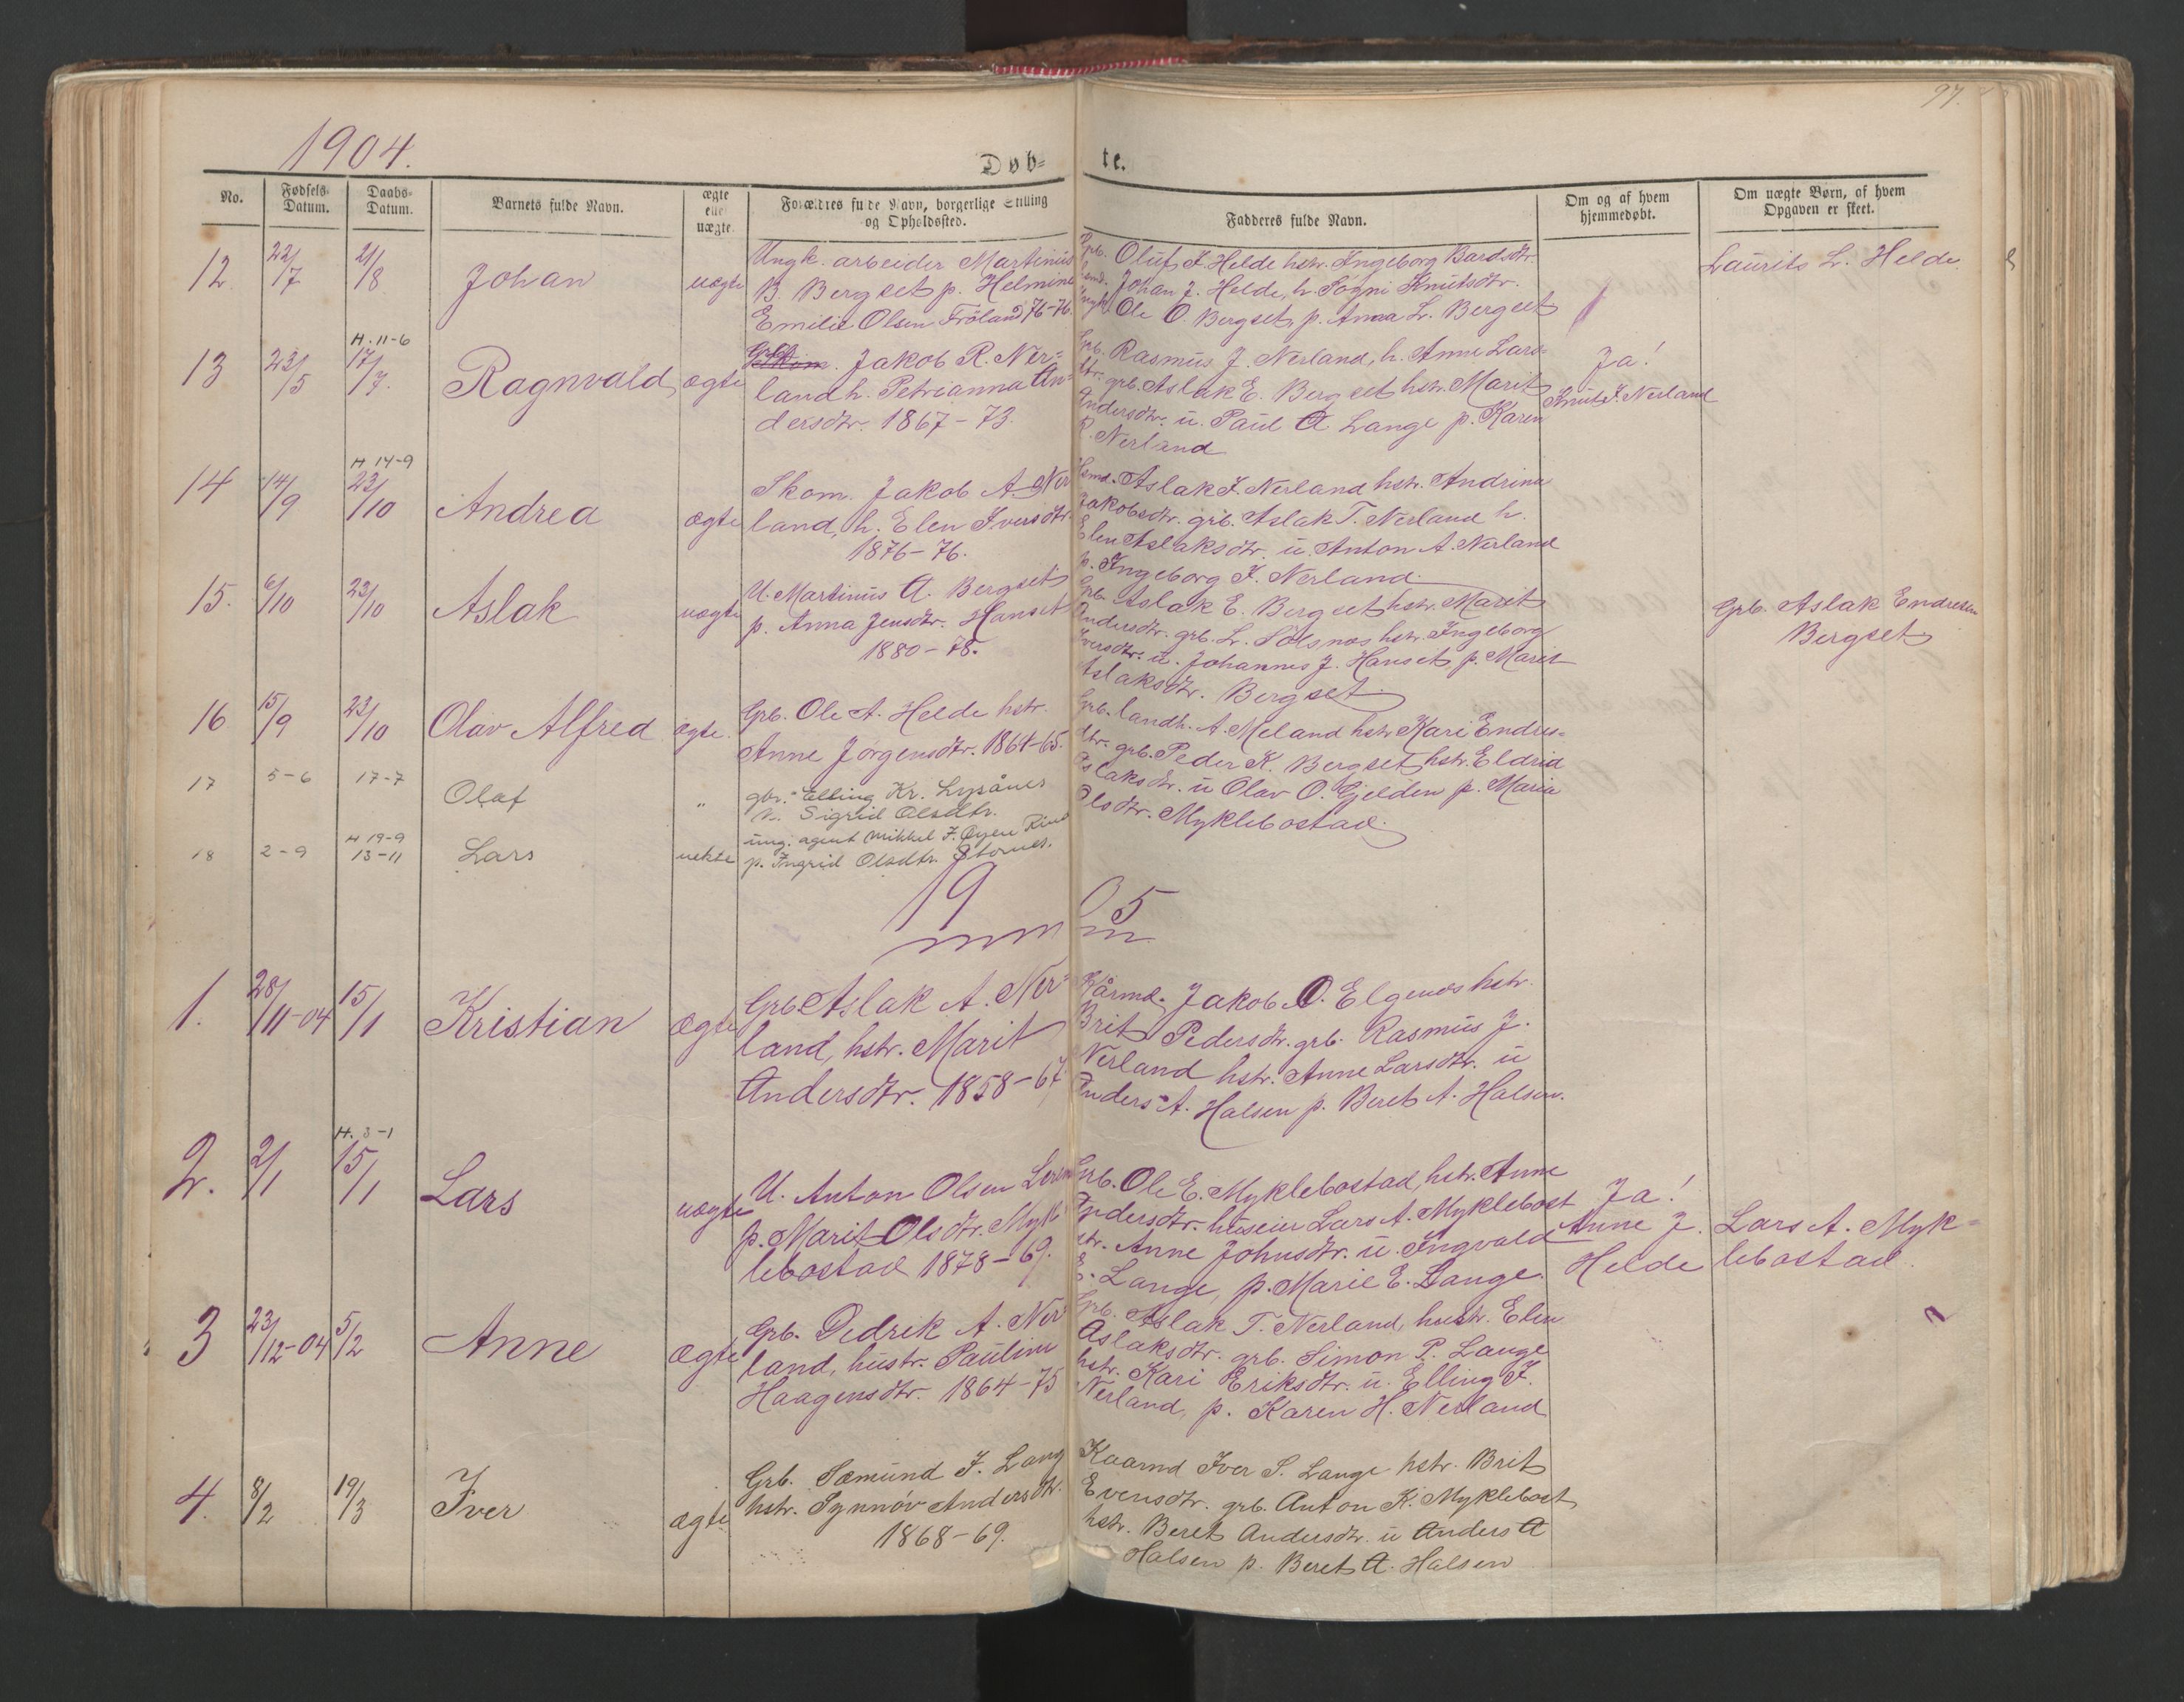 97.
1904.
Døb-
te.
No.
Fødsels-
Datum.
Daabs-
Datum.
Barnets fulde Navn.
ægte
eller
uægte.
Forældres fulde Navn, borgerlige Stilling
og Opholdssted.
Fadderes fulde Navn.
Om og af hvem
hjemmedøbt.
Om uægte Børn, af hvem
Opgaven er skeet.
12
22/7
21/8
Johan
uægte
Ungk. arbeider Martinus
B. Bergset p. Helmine
Emilie Olsen Fröland 76-76.
Grb. Oluf I. Helde hstr. Ingeborg Bardsdtr.
Johan J. Helde, h. Sögni Knutsdtr.
Ungk. Ole O. Bergset, p. Anna L. Bergset
Laurits L. Helde.
13
23/5
H. 11-6
17/7.
Ragnvald
ægte
Grb.
Skom. Jakob R. Ner-
land h. Petrianna An-
dersdtr. 1867-73.
Grb. Rasmus J. Nerland, h. Anne Lars-
dtr. grb. Aslak E. Bergset hstr. Marit
Andersdtr. u. Paul A. Lange p. Karen
R. Nerland
Ja!
Knut J. Nerland
14
14/9
H. 14-9
23/10
Andrea
ægte
Skom. Jakob A. Ner
land, h. Elen Iversdtr.
1876-76.
Hsmd. Aslak J. Nerland hstr. Andrine
Jakobsdtr. grb. Aslak T. Nerland h.
Elen Aslaksdtr. u. Anton A. Nerland
p. Ingeborg I. Nerland.
15.
6/10
23/10
Aslak
uægte
U. Martinus A. Bergset
p. Anna Jensdtr. Hanset
1880-78.
Grb. Aslak E. Bergset hstr. Marit
Andersdtr. grb. L. Solsnos hstr. Ingeborg
Iversdtr. u. Johannes J. Hanset, p. Marit
Aslaksdtr. Bergset.
Grb. Aslak Endresen
Bergset
16
15/9
23/10
Olav Alfred
ægte.
Grb. Ole A. Helde hstr.
Anne Jörgensdtr. 1864-65.
Grb. landh. A. Meland hstr. Kari Endres-
dtr. grb. Peder K. Bergset, hstr. Eldrid
Aslaksdtr. u Olav O. Gjelden p. Marie
Olsdtr. Myklebostad.
17
5-6
17-7
Olaf
"
gbr. Elling Kr. Lysånes
h. Sigrid Olsdtr.
18
2-9
H 19-9
13-11
Lars
uekte
ung. agent Mikkel F. Øyen Rind
p. Ingrid Olsdtr.
19
05
1.
28/11-04
15/1
Kristian
ægte
Grb. Aslak A. Ner-
land, hstr. Marit
Andersdtr. 1858-67
Kårmd. Jakob O. Elgenes hstr.
Brit Pedersdtr. grb. Rasmus J.
Nerland hstr. Anne Larsdtr. u
Anders A. Halsen p. Beret A. Halsen.
2.
2/1
H. 3-1
15/1
Lars
uægte
U. Anton Olsen
p. Marit Olsdtr. Myk-
lebostad 1878-69.
Grb. Ole E. Myklebostad, hstr. Anne
Pedersdtr. huseier Lars A. Myklebost
hstr. Anne Johnsdtr. u. Ingvald
E. Lange, p. Marie E. Lange.
Ja!
Anne J.
Helde
Lars A. Myk-
lebostad.
3
23/12-04
5/2
Anne
ægte
Grb. Dedrek A. Ner-
land, hustr. Pauline
Haagensdtr. 1864-75
Grb. Aslak T. Nerland, hustr. Elen
Aslaksdtr. grb. Simon P. Lange
hstr. Kari Eriksdtr. u. Elling I.
Nerland, p. Karen H. Nerland
4.
8/2
19/3
Iver
ægte
Grb. Sæmund I. Lang
hstr. Synnöv Andersdtr.
1868-69.
Kaarmd Iver S. Lange hstr. Brit
Evensdtr. grb. Anton K. Myklebost,
hstr. Beret Andersdtr. u Anders A
Halsen p. Beret A. Halsen